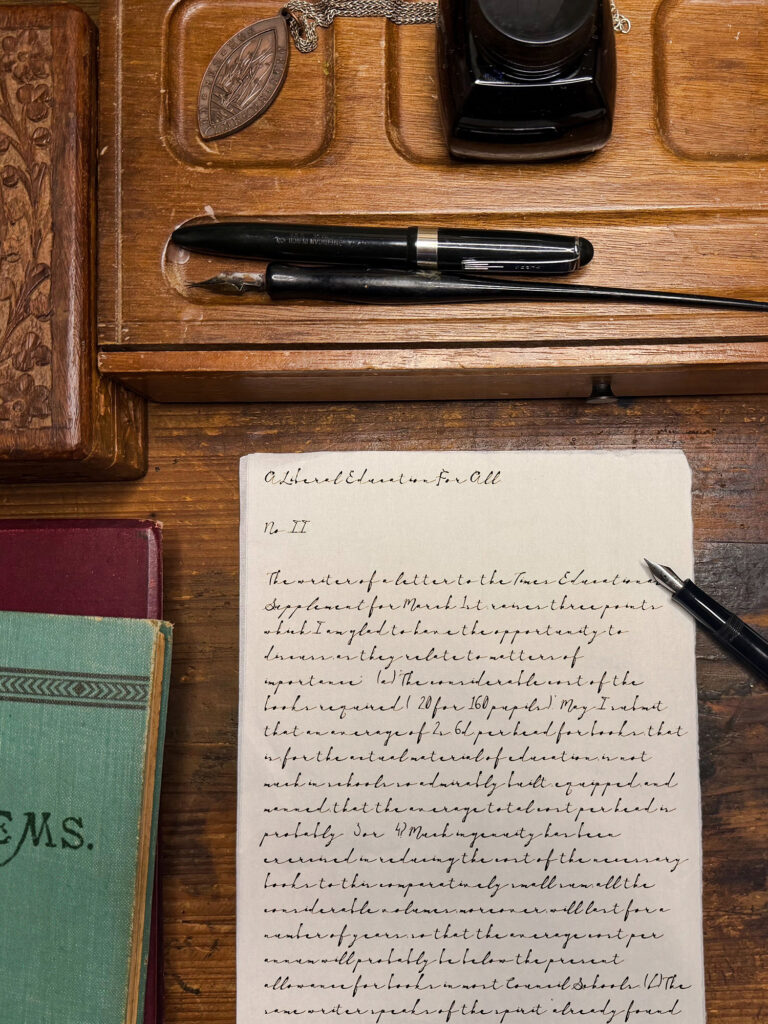 EMS.
A Liberal Education For All
No II
The writer of a letter to the Times Educational
Supplement for March 1st, raises three points
which I am glad to have the opportunity to
discuss, as they relate to matters of
importance: (a) "The considerable cost of the
books required ( 20 for 160 pupils)." May I submit
that an average of 2s. 6d per head for books, that
is for the actual material of education, is not
much in schools so admirably built, equipped, and
manned that the average total cost per head is
probably 3 or 4? Much ingenuity has been
exercised in reducing the cost of the necessary
books to this comparatively small sum, all the
considerable volumes, moreover, will last for a
number of years, so that the average cost per
annum will probably be below the present
allowance for books in most Council Schools. (b) The
same writer speaks of the spirit "already found